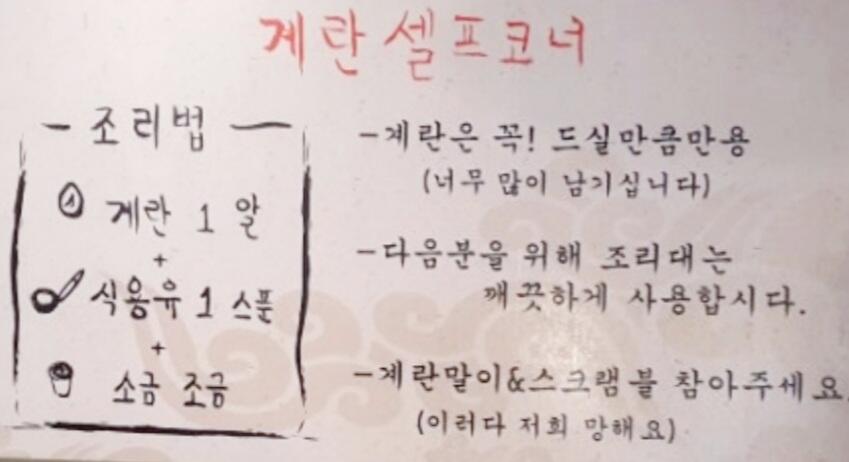 계란셀프코너
- 조리법 -
계란 1 알
+
식용유 1 스푼
+
소금 조금
- 계란은 꼭! 드실만큼만용
(너무 많이 남기십니다)
- 다음분을 위해 조리대는
깨끗하게 사용합시다.
- 계란말이&스크램블 참아주세요
(이러다 저희 망해요)